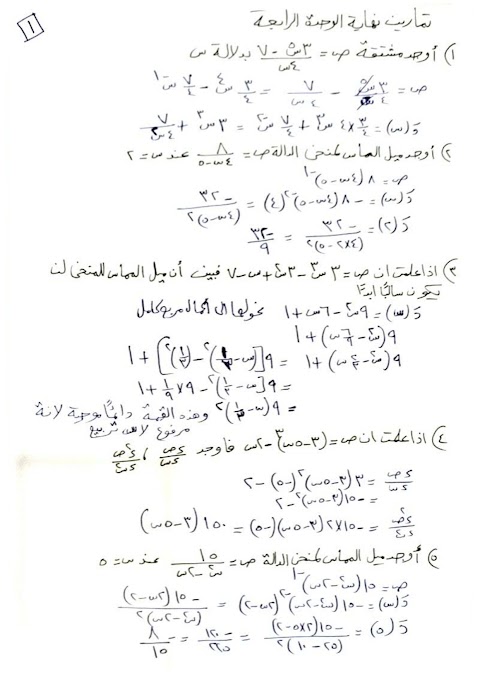 ١
تمارين نهاية الوحدة الرابعة
١) أوجد مشتقة ص = (٣س٥ - ٧) / ٤س بدلالة س
ص = ٣س٥ / ٤س - ٧ / ٤س = ٣/٤ س٤ - ٧/٤ س-١
دَ(س) = ٣/٤ × ٤س٣ + ٧/٤ س-٢ = ٣س٣ + ٧ / ٤س٢
٢) أوجد ميل المماس لمنحنى الدالة ص = ٨ / (٤س - ٥) عند س = ٢
ص = ٨(٤س - ٥)-١
دَ(س) = -٨(٤س - ٥)-٢(٤) = -٣٢ / (٤س - ٥)٢
دَ(٢) = -٣٢ / (٤×٢ - ٥)٢ = -٣٢ / ٩
٣) اذا علمت ان ص = ٣س٣ - ٣س٢ + س - ٧ فبين أن ميل المماس للمنحنى لن
يكون سالبًا ابدًا
دَ(س) = ٩س٢ - ٦س + ١ نحولها الى اكمال مربع كامل
٩(س٢ - ٦/٩ س) + ١
٩(س٢ - ٢/٣ س) + ١ = ٩[(س - ١/٣)٢ - (١/٣)٢] + ١
= ٩(س - ١/٣)٢ - ٩ × ١/٩ + ١
= ٩(س - ١/٣)٢ وهذه القيمة دائمًا موجبة لانة
مرفوع لاس تربيع
٤) اذا علمت ان ص = (٣ - ٥س)٣ - ٢س فاوجد ءص/ءس ، ء٢ص/ءس٢
ءص/ءس = ٣(٣ - ٥س)٢(-٥) - ٢
= -١٥(٣ - ٥س)٢ - ٢
ء٢ص/ءس٢ = -١٥×٢(٣ - ٥س)(-٥) = ١٥٠(٣ - ٥س)
٥) أوجد ميل المماس لمنحنى الدالة ص = ١٥ / (س٢ - ٢س) عند س = ٥
ص = ١٥(س٢ - ٢س)-١
دَ(س) = -١٥(س٢ - ٢س)-٢(٢س - ٢) = -١٥(٢س - ٢) / (س٢ - ٢س)٢
دَ(٥) = -١٥(٢×٥ - ٢) / (٢٥ - ١٠)٢ = -١٢٠ / ٢٢٥ = -٨ / ١٥